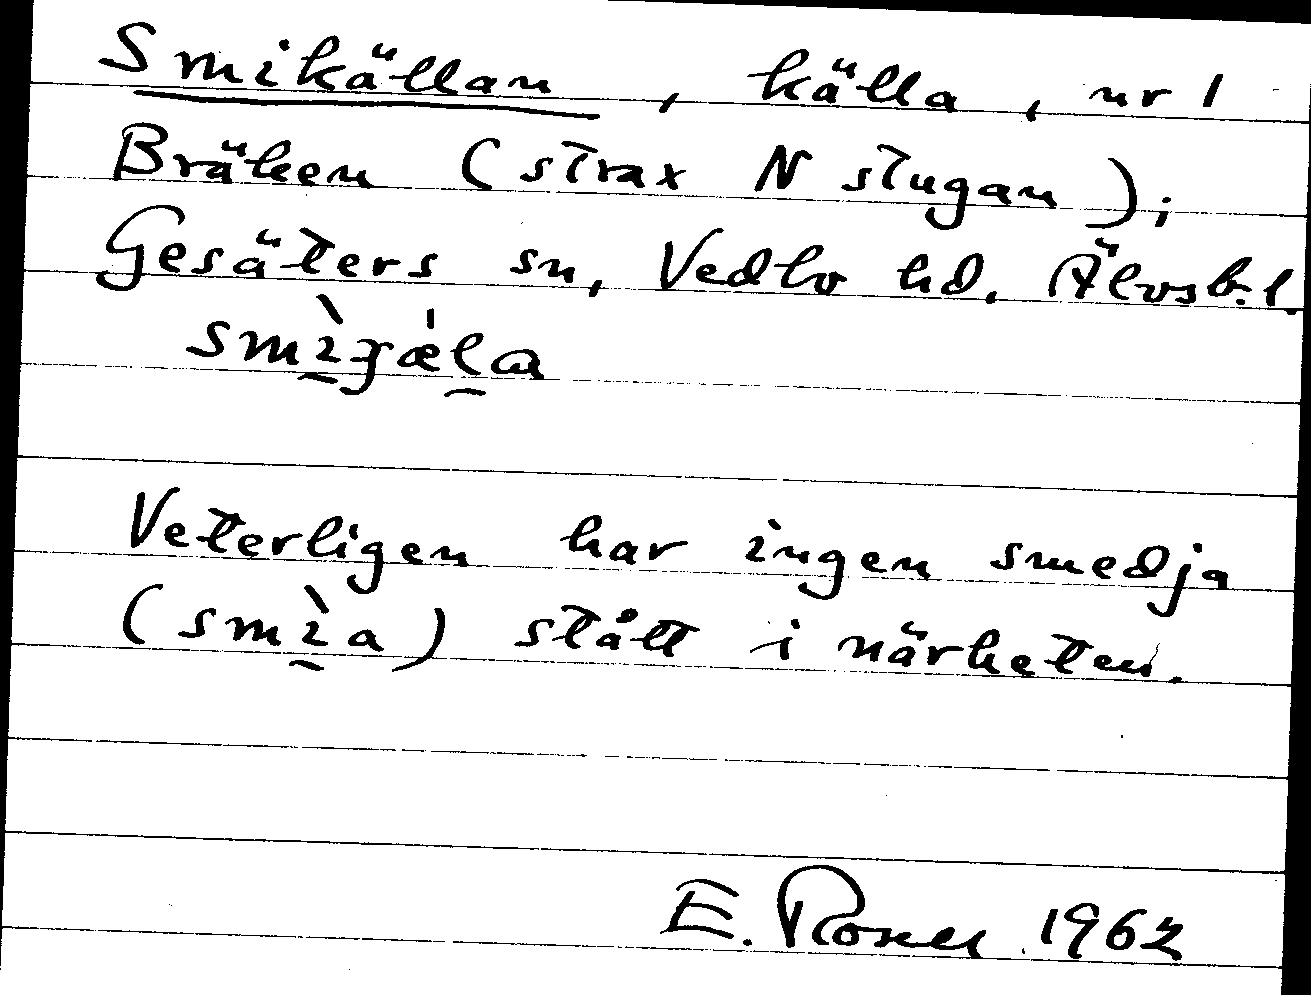 Smikällan, källa, nr 1
Bräcken (strax N stugan),
Gesäters sn, Vedbo hd. Älvsb. l.
smì̱ɟæ̍ḻa
Veterligen har ingen smedja
(smì̱a) stått i närheten.
E. Rosell 1962